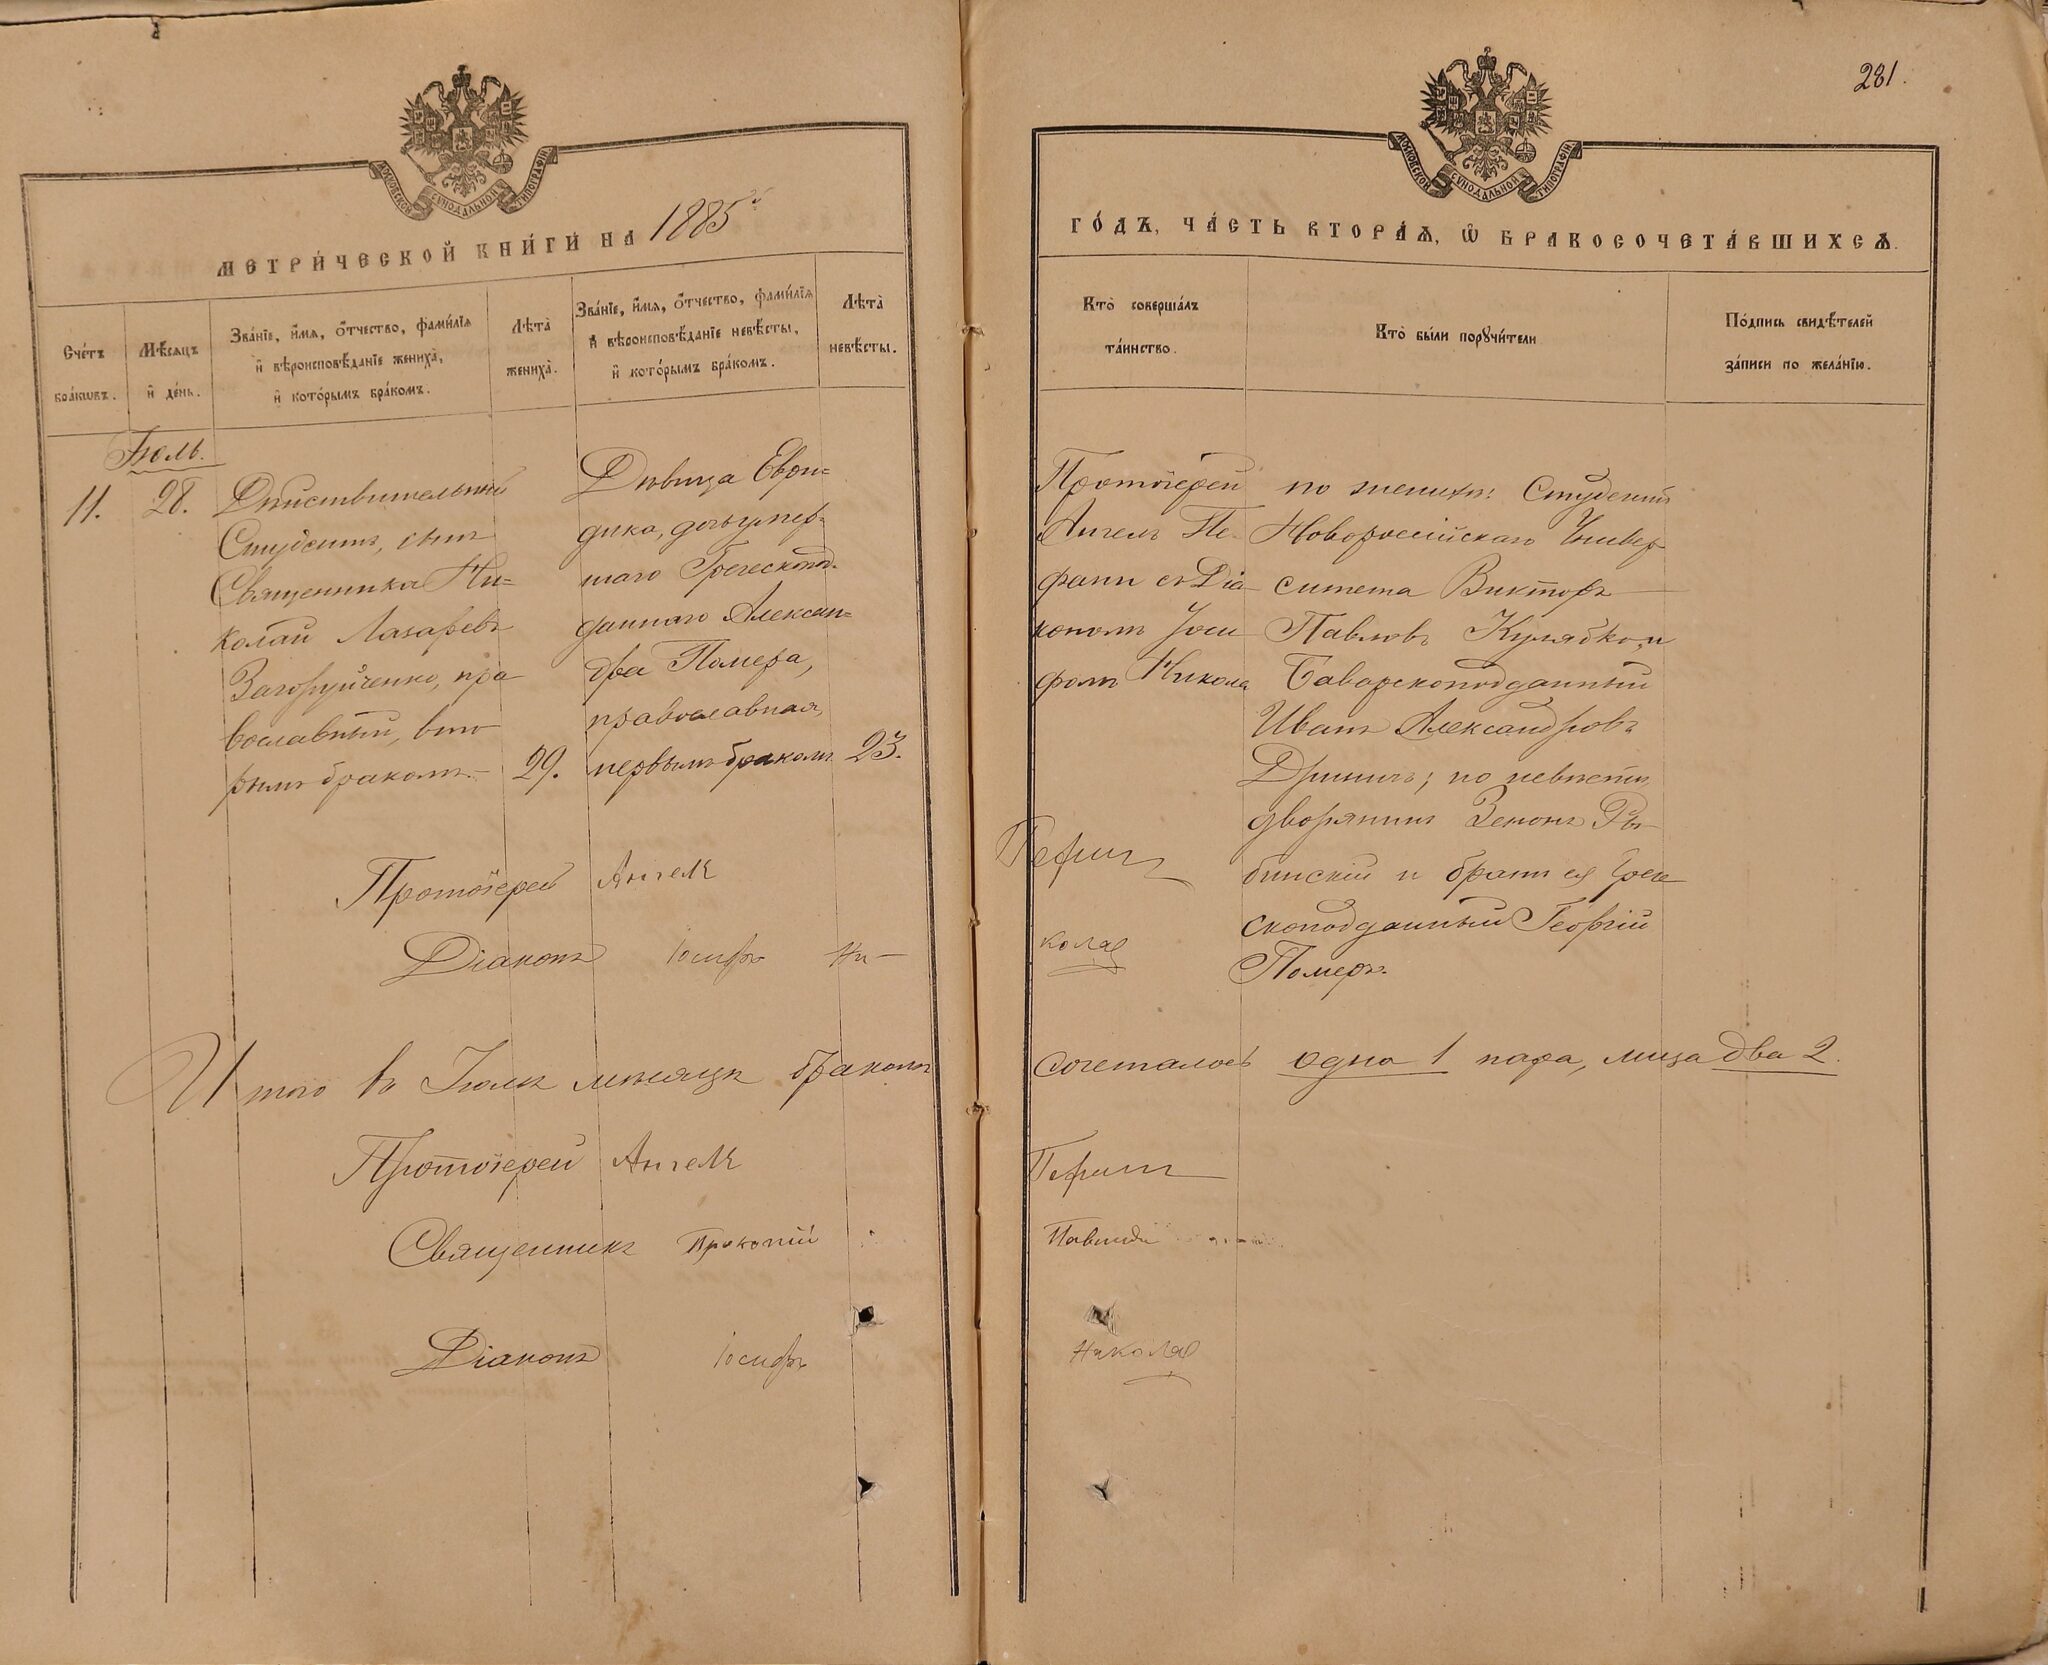 281.
МОСКОВСКОЙ СѴНОДАЛЬНОЙ ТИПОГРАФІИ
МОСКОВСКОЙ СѴНОДАЛЬНОЙ ТИПОГРАФІИ
МЕТРИ́ЧЕСКОЙ КНИ́ГИ НА 1885й
ГО́ДЪ, ЧА́СТЬ ВТОРА́Ѧ, Ѡ БРАКОСОЧЕТА́ВШИХСѦ.
Сче́тъ
бра́кѡвъ.
Мѣ́сѧцъ
и҆ де́нь.
Зва́нїе, и҆́мѧ, ѻ҆́тчество, фами́лїѧ
и҆ вѣроисповѣ́данїе жениха̀,
и҆ кото́рымъ бра́комъ.
Лѣ́та
жениха̀.
Зва́нїе, и҆́мѧ, ѻ҆́тчество, фами́лїѧ
и҆ вѣроисповѣ́данїе невѣ́сты,
и҆ кото́рымъ бра́комъ.
Лѣта̀
невѣ́сты.
Кто̀ соверша́лъ
та́инство.
Кто̀ бы́ли порꙋчи́тели
По́дпись свидѣ́телей
за́писи по жела́нїю.
Іюль.
11.
28.
Дѣйствительный
Студентъ, сынъ
Священника Ни-
колай Лазаревъ
Загоруйченко, пра
вославный, вто
рымъ бракомъ.-
29.
Дѣвица Еври-
дика, дочь умер-
шаго Греческопод-
даннаго Алексан-
дра Помера,
православная,
первымъ бракомъ
23.
Протоіерей
Ангелъ Пе-
фани съ Діа
кономъ Іоси
фомъ Никола
по женихѣ: Студентъ
Новороссійскаго Универ
ситета Викторъ
Павловъ Кулябко, и
Баварскоподданный
Иванъ Александровъ
по невѣстѣ,
дворянинъ Зенонъ Ры-
бинскій и братъ ея Грече
скоподданный Георгій
Померъ.
Протоіерей Ангелъ
Діаконъ Іосифъ Ни-
кола
Итого въ Іюлѣ мѣсяцѣ бракомъ сочеталось одна 1 пара, лица два 2.
Протоіерей Ангелъ
Священникъ Прокопій
Діаконъ Іосифъ Никола